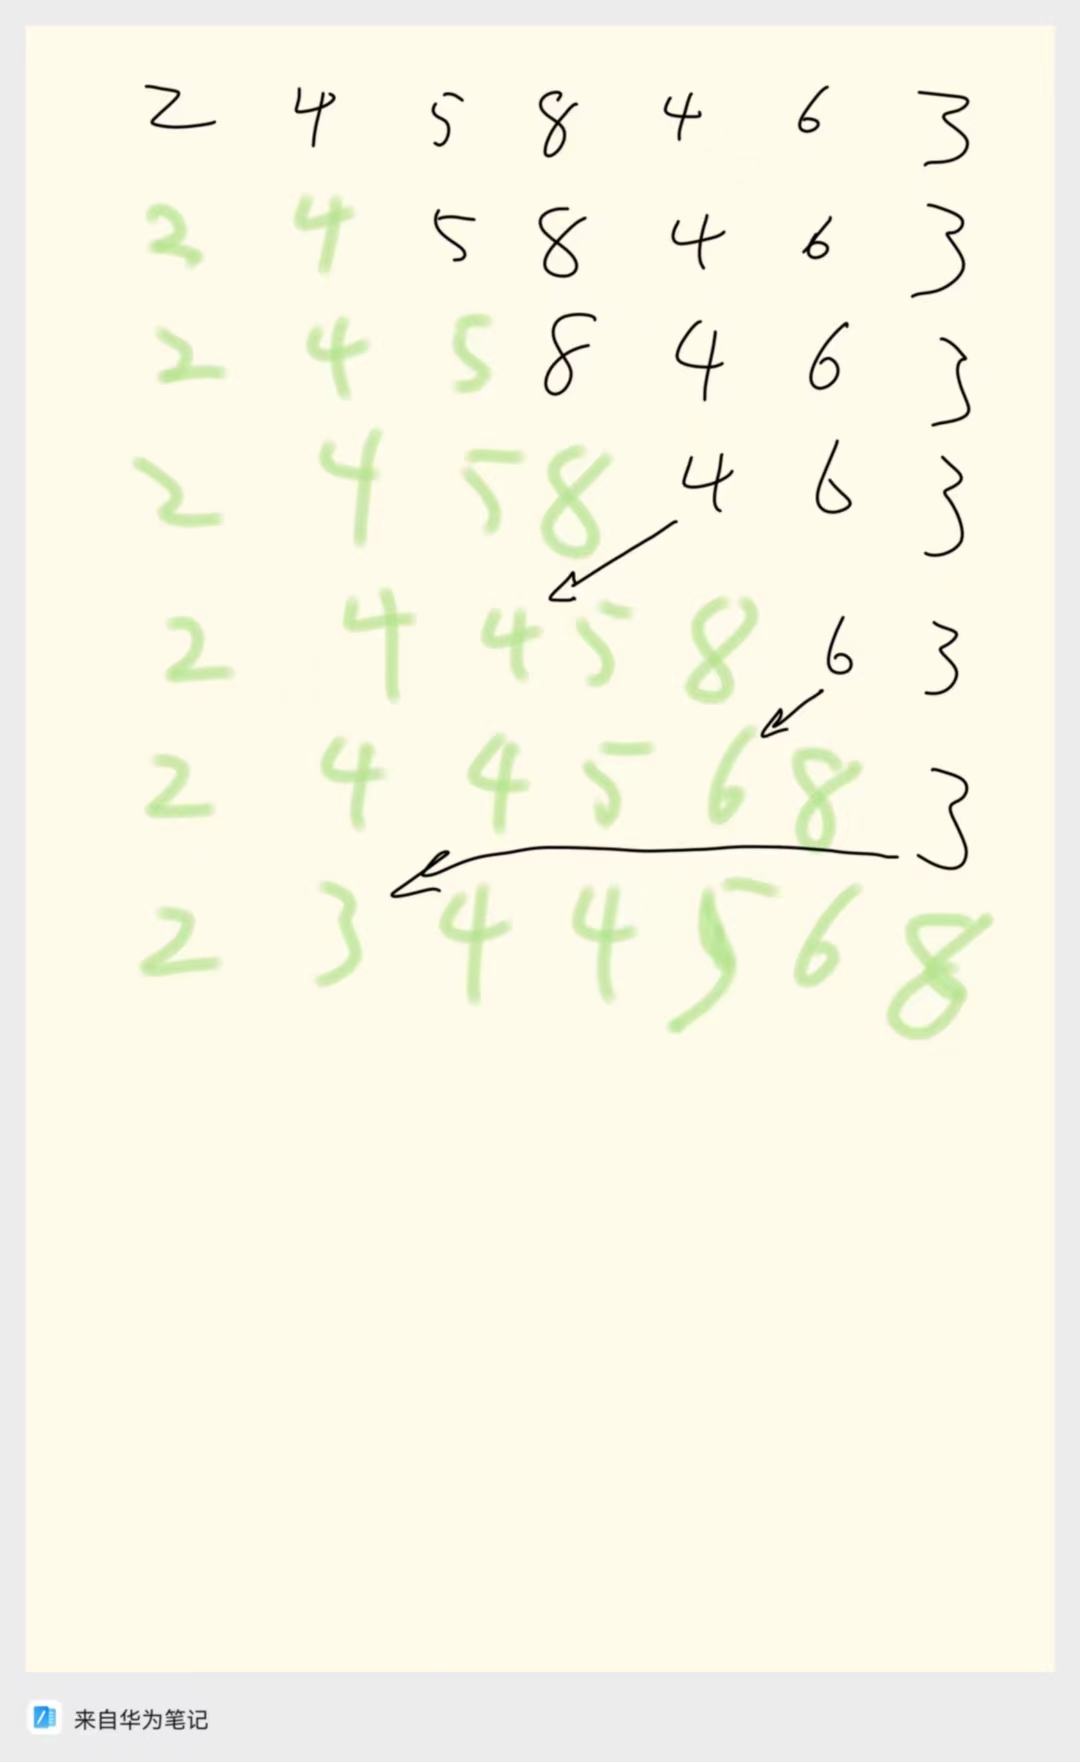 2 4 5 8 4 6 3
2 4 5 8 4 6 3
2 4 5 8 4 6 3
2 4 5 8 4 6 3
2 4 4 5 8 6 3
2 4 4 5 6 8 3
2 3 4 4 5 6 8
来自华为笔记